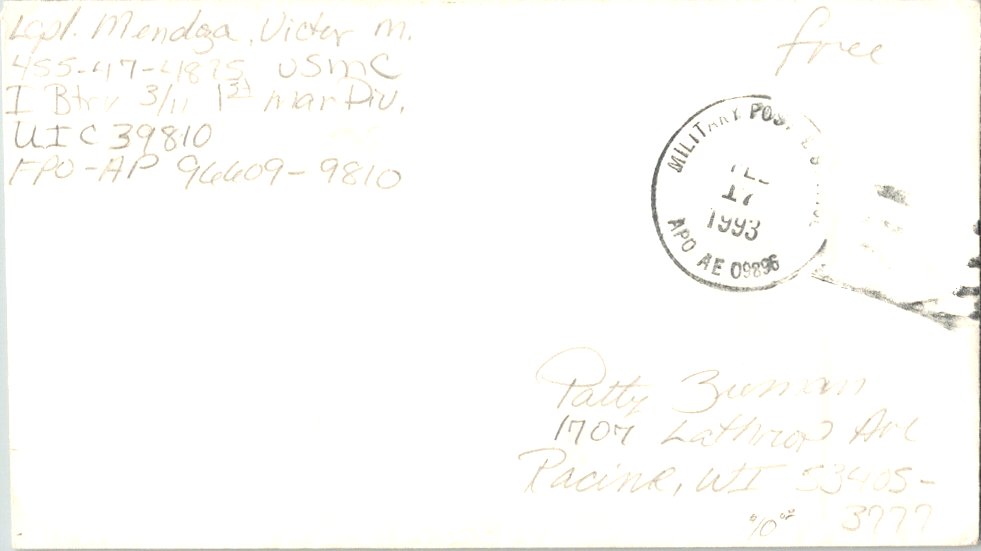 Lcpl. Mendoza, Victor M.
USMC
I Btry 3/11 1st Mar Div.
UIC 39810
FPO-AP 96609-9810
free
MILITARY
17
1993
APO AE 09896
Patty
1707 Lathrop Ave
Racine, WI 53405-
3777